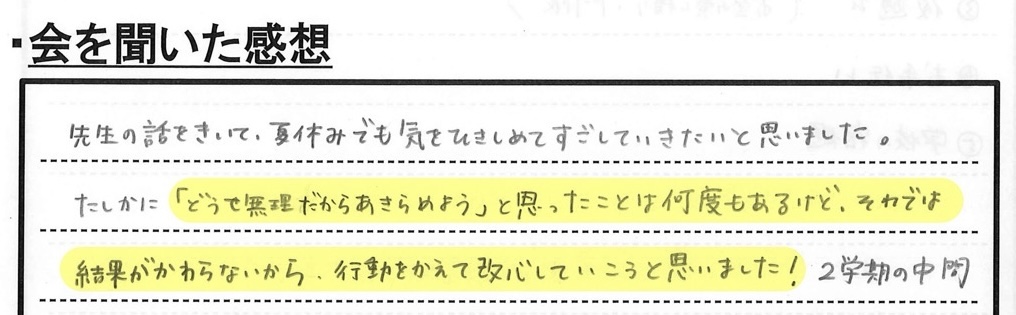 ・会を聞いた感想
先生の話をきいて、夏休みでも気をひきしめてすごしていきたいと思いました。
たしかに「どうせ無理だからあきらめよう」と思ったことは何度もあるけど、それでは
結果がかわらないから、行動をかえて改心していこうと思いました！2学期の中間